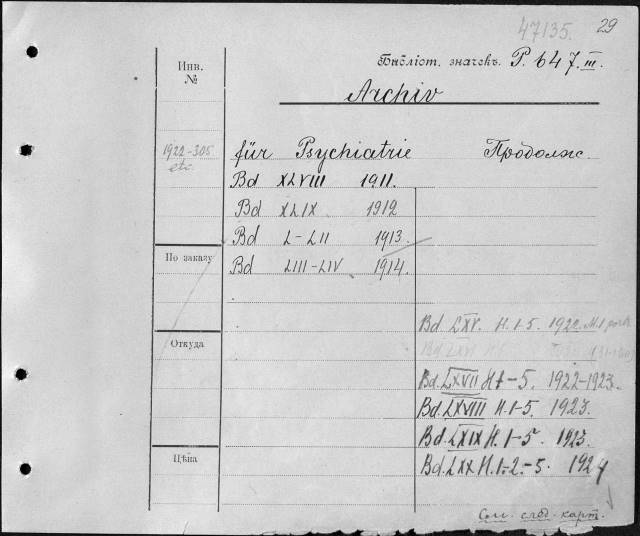 47135. 29
Библіот. значекъ. P. 647. III.
Инв.
№
Archiv
1922-305
etc.
für Psychiatrie Продолж.
Bd XLVIII 1911.
Bd XLIX 1912
Bd L-LII 1913.
По заказу
Bd LIII-LIV 1914.
Bd LXV. H. 1-5. 1922.
Откуда
Bd. LXVII H 1-5. 1922-1923.
Bd. LXVIII H. 1-5. 1923.
Bd. LXIX H. 1-5. 1923.
Цѣна
Bd. LXX H. 1.-2.-5. 1924
См. след. карт.